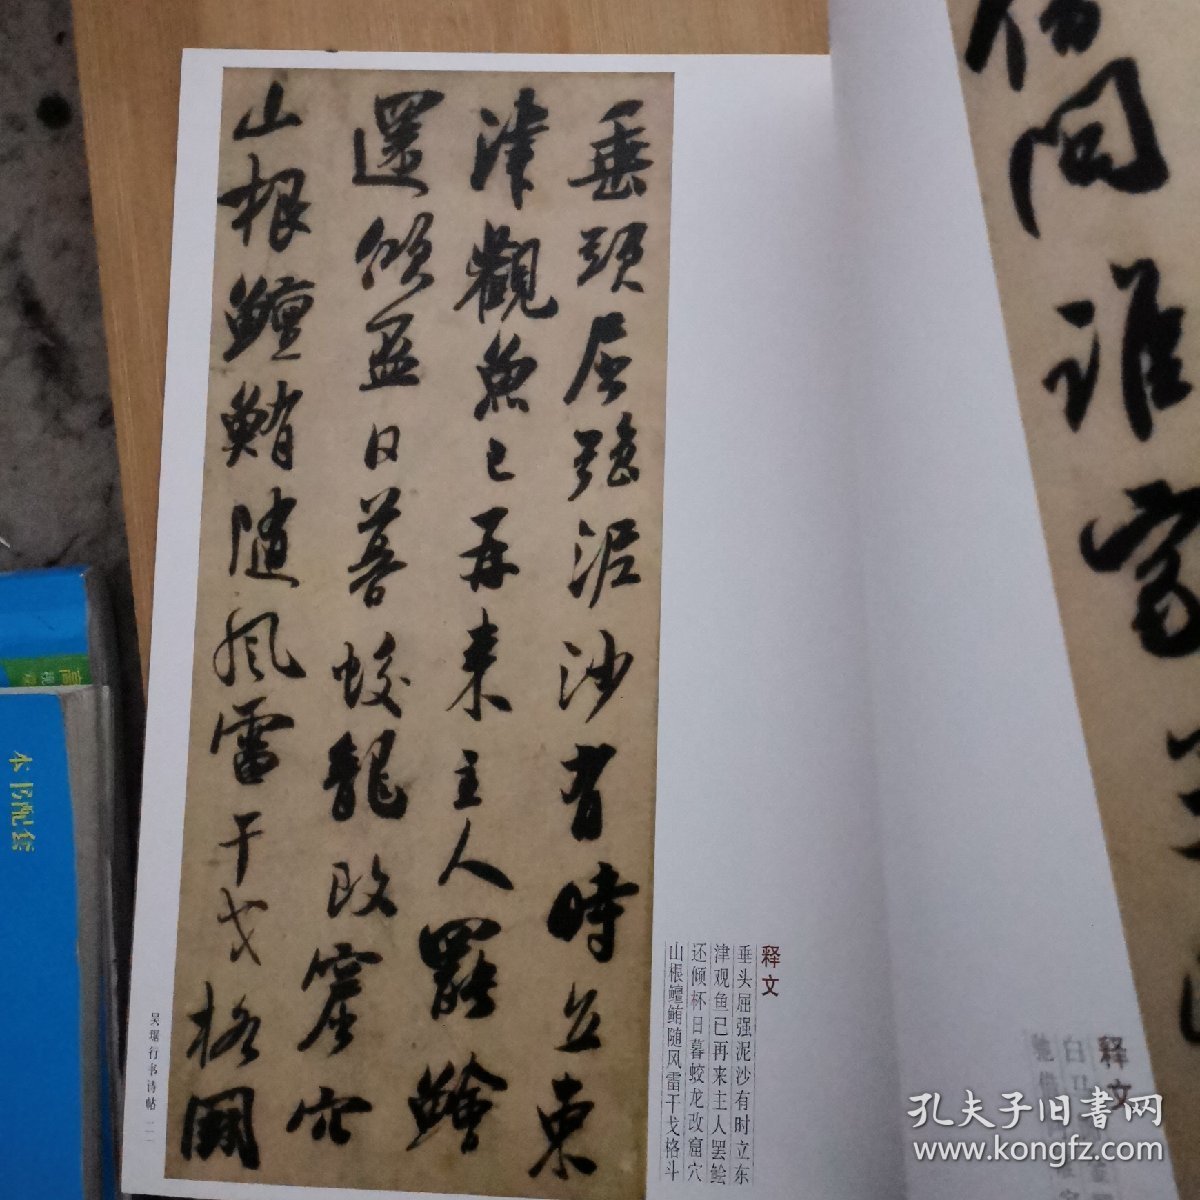 問誰家
释文
垂頭屈強泥沙有時立東
津觀魚已再來主人罷鱠
還傾盃日暮蛟龍改窟穴
山根鱣鮪隨風雷干戈格鬭
释文
垂头屈强泥沙有时立东
津观鱼已再来主人罢鲙
还倾杯日暮蛟龙改窟穴
山根鳣鲔随风雷干戈格斗
吴琚行书诗帖
本书配套
孔夫子旧书网
www.kongfz.com